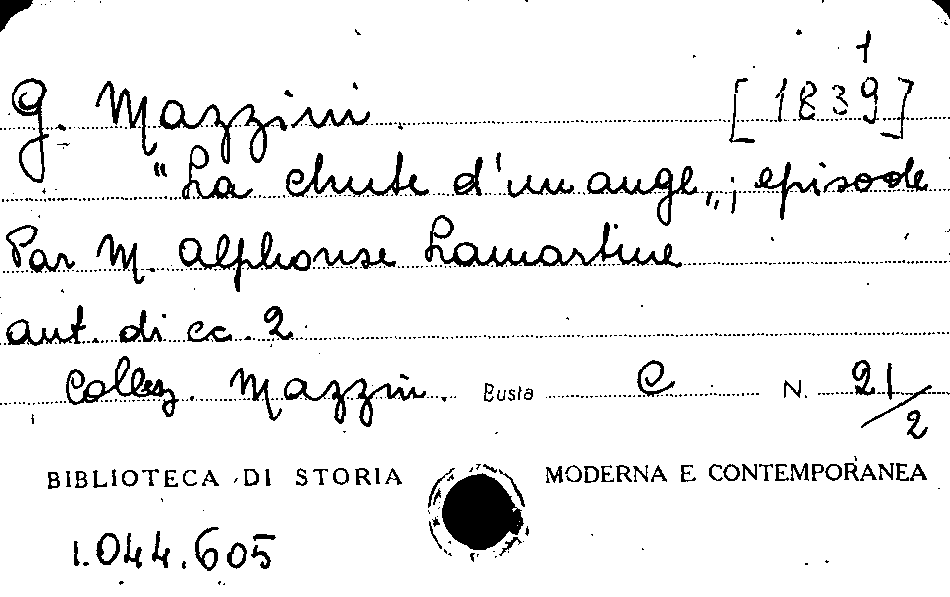 1
G. Mazzini. [1839]
"La chute d'un ange„; episode
Par M. Alphonse Lamartine
aut. di cc. 2
Collez. Mazzin. Busta C N. 21/2
BIBLIOTECA DI STORIA MODERNA E CONTEMPORANEA
1.044.605